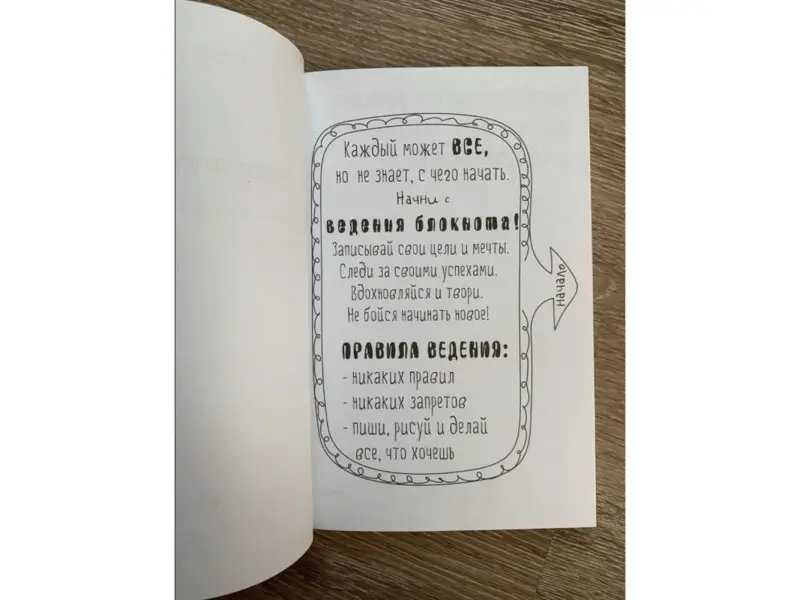 Каждый может ВСЕ,
но не знает, с чего начать.
Начни с
ведения блокнота!
Записывай свои цели и мечты.
Следи за своими успехами.
Вдохновляйся и твори.
Не бойся начинать новое!
ПРАВИЛА ВЕДЕНИЯ:
- никаких правил
- никаких запретов
- пиши, рисуй и делай
все, что хочешь
Начало